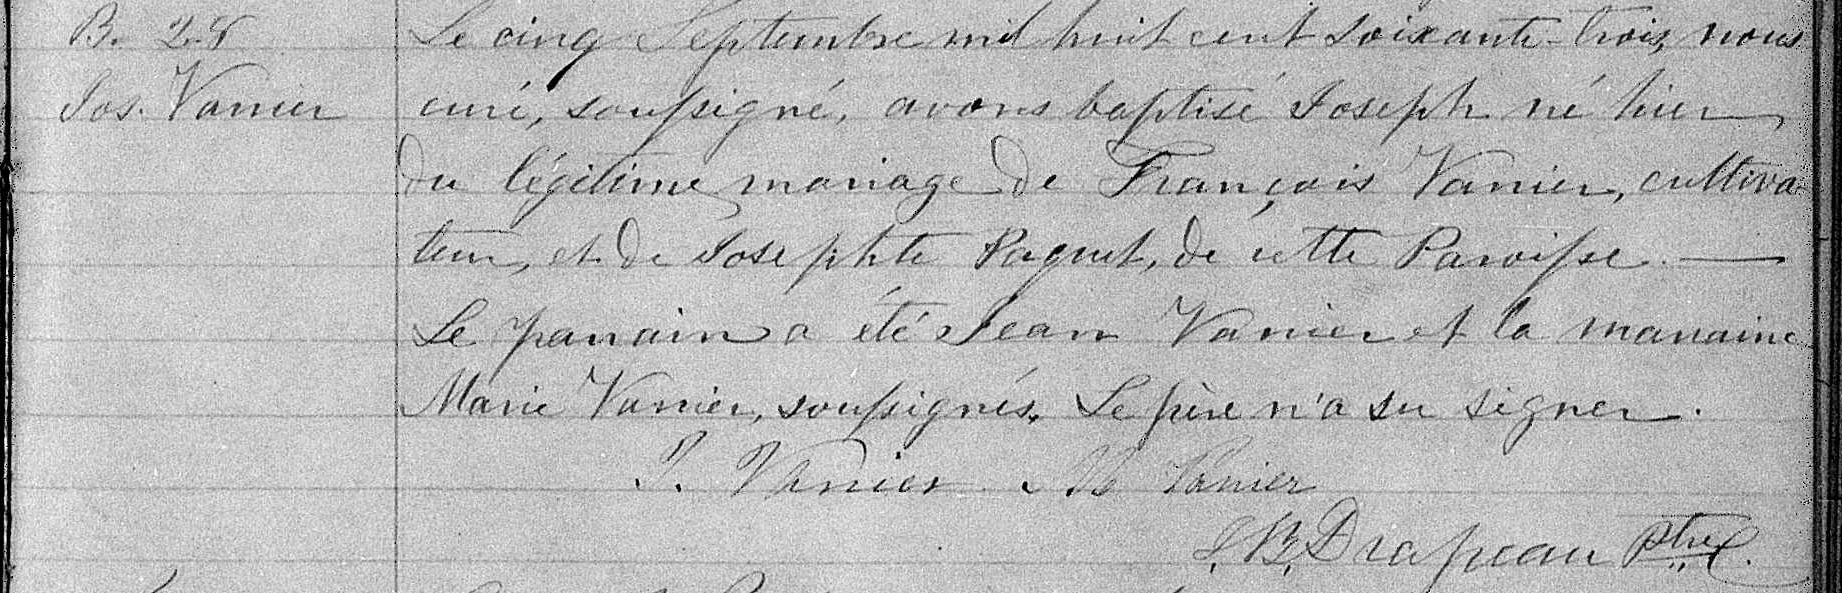 B. 28
Jos. Vanier
Le cinq Septembre mil huit cent soixante-trois, nous
curé, soussigné, avons baptisé Joseph né hier
du légitime mariage de François Vanier, cultiva-
teur, et de Josephte Paquet, de cette Paroisse. —
Le parrain a été Jean Vanier et la marraine
Marie Vanier, soussignés. Le père n'a su signer.
J. Vanier M Vanier
Drapeau Ptre